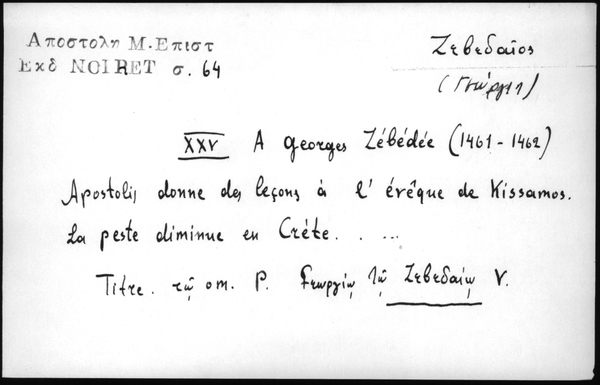 Αποστολη Μ. Επιστ
Εκδ NOIRET σ. 64
Ζεβεδαῖος
(Γεώργιος)
XXV A Georges Zébédée (1461-1462)
Apostolis donne des leçons à l' évêque de Kissamos.
La peste diminue en Crète. . ...
Titre. τῷ om. P. Γεωργίῳ τῷ Ζεβεδαίῳ V.